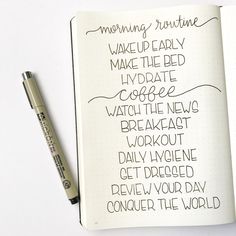 morning routine
WAKE UP EARLY
MAKE THE BED
HYDRATE
coffee
WATCH THE NEWS
BREAKFAST
WORKOUT
DAILY HYGIENE
GET DRESSED
REVIEW YOUR DAY
CONQUER THE WORLD